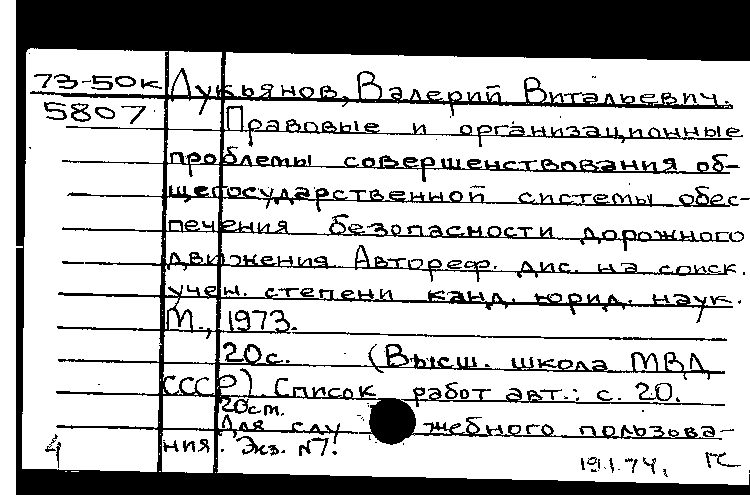 73-50к Лукьянов, Валерий Витальевич.
5807 Правовые и организационные
проблемы совершенствования об-
щегосударственной системы обес-
печения безопасности дорожного
движения Автореф. дис. на соиск.
учен. степени канд. юрид. наук.
М., 1973.
20с. (Высш. школа МВД
СССР). Список работ авт.: с. 20.
20ст.
Для слу жебного пользова-
4 ния. Экз. №7.
19.1.74,